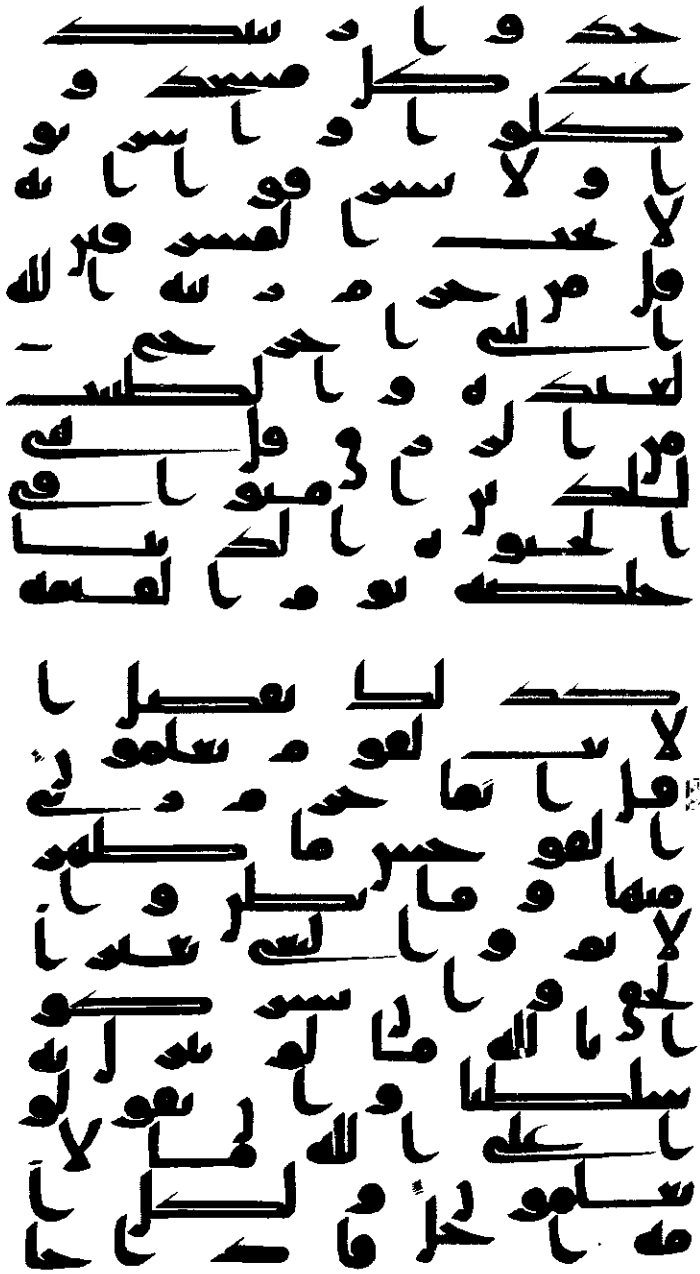 خذوا زينتكم
عند كل مسجد و
كلوا واشربو
ا ولا تسرفوا انه
لا يحب المسرفين
قل من حرم زينة الله
التي اخرج
لعباده والطيبت
من الرزق قل هي
للذين امنوا في
الحيوة الدنيا
خالصة يوم القيمة
كذلك نفصل ا
لايت لقوم يعلمون
قل انما حرم ربي
الفوحش ما ظهر
منها وما بطن وا
لاثم والبغي بغير ا
لحق وان تشركو
ا بالله ما لم ينزل به
سلطنا وان تقولو
ا على الله ما لا
تعلمون ولكل ا
مة اجل فاذا جا